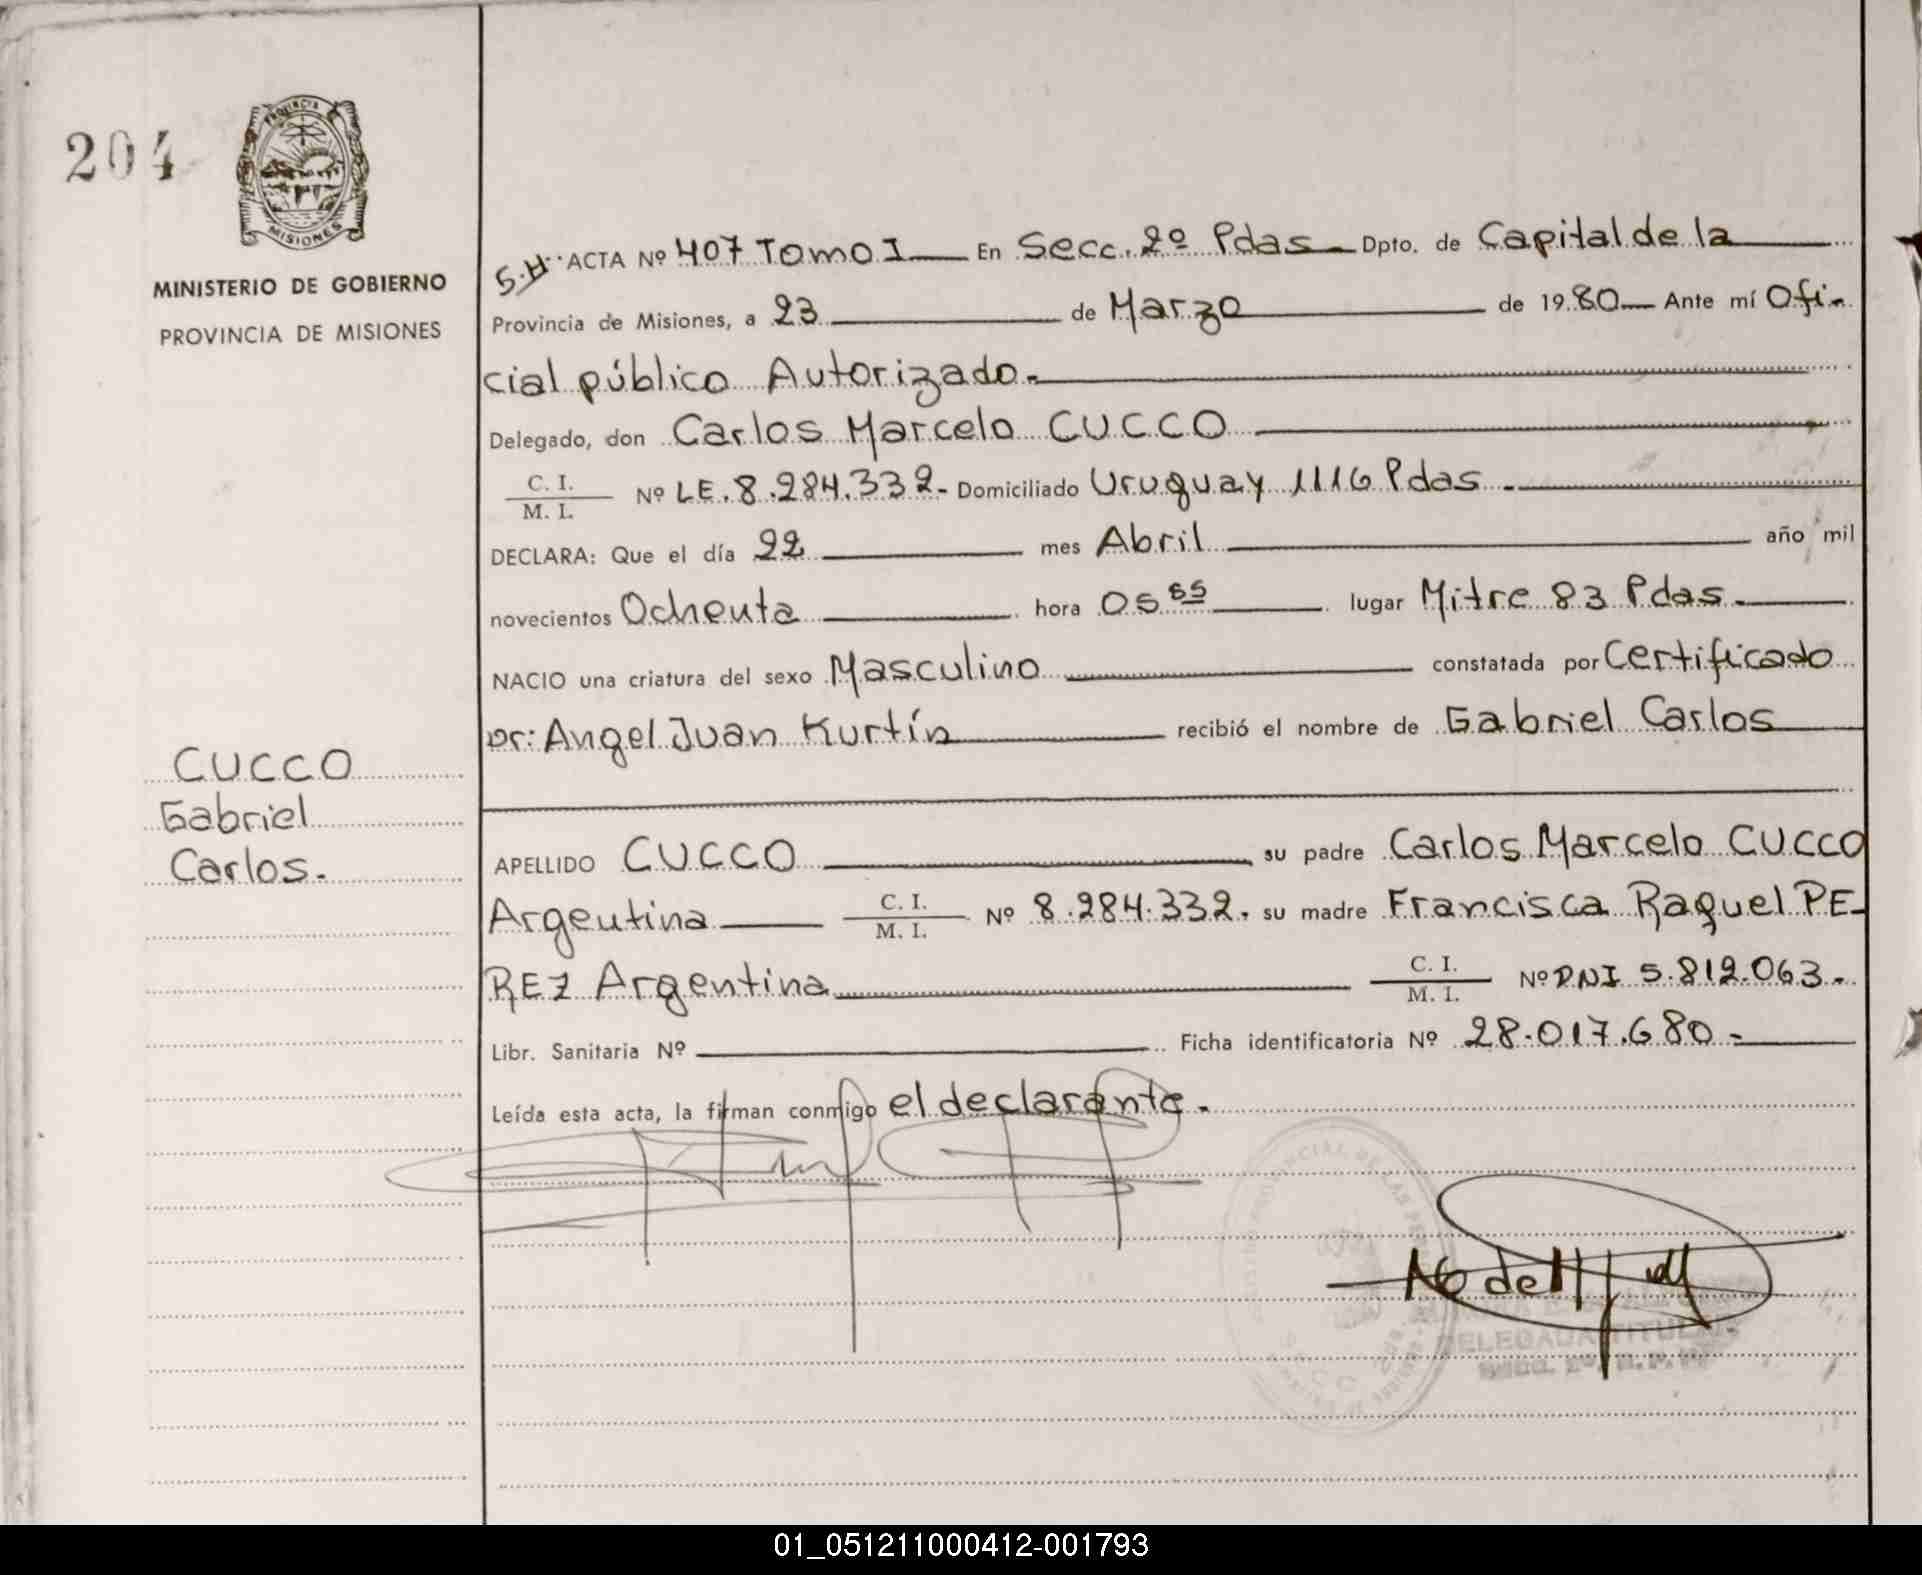 204
PROVINCIA
MISIONES
MINISTERIO DE GOBIERNO
PROVINCIA DE MISIONES
S.H. ACTA Nº 407 Tomo I En Secc. 2º Pdas Dpto. de Capital de la
Provincia de Misiones, a 23 de Marzo de 1980 Ante mí Ofi-
cial público Autorizado.
Delegado, don Carlos Marcelo CUCCO
C. I.
M. I. Nº LE. 8.284.332. Domiciliado Uruguay 1116 Pdas.
DECLARA: Que el día 22 mes Abril año mil
novecientos Ochenta hora 05 55 lugar Mitre 83 Pdas.
NACIO una criatura del sexo Masculino constatada por Certificado
Dr: Angel Juan Kurtín recibió el nombre de Gabriel Carlos
CUCCO
Gabriel
Carlos.
APELLIDO CUCCO su padre Carlos Marcelo CUCCO
Argentina C. I.
M. I. Nº 8.284.332. su madre Francisca Raquel PE-
REZ Argentina C. I.
M. I. Nº DNI 5.812.063.
Libr. Sanitaria Nº Ficha identificatoria Nº 28.017.680.
Leída esta acta, la firman conmigo el declarante.
DELEGADA TITULAR
01_051211000412-001793